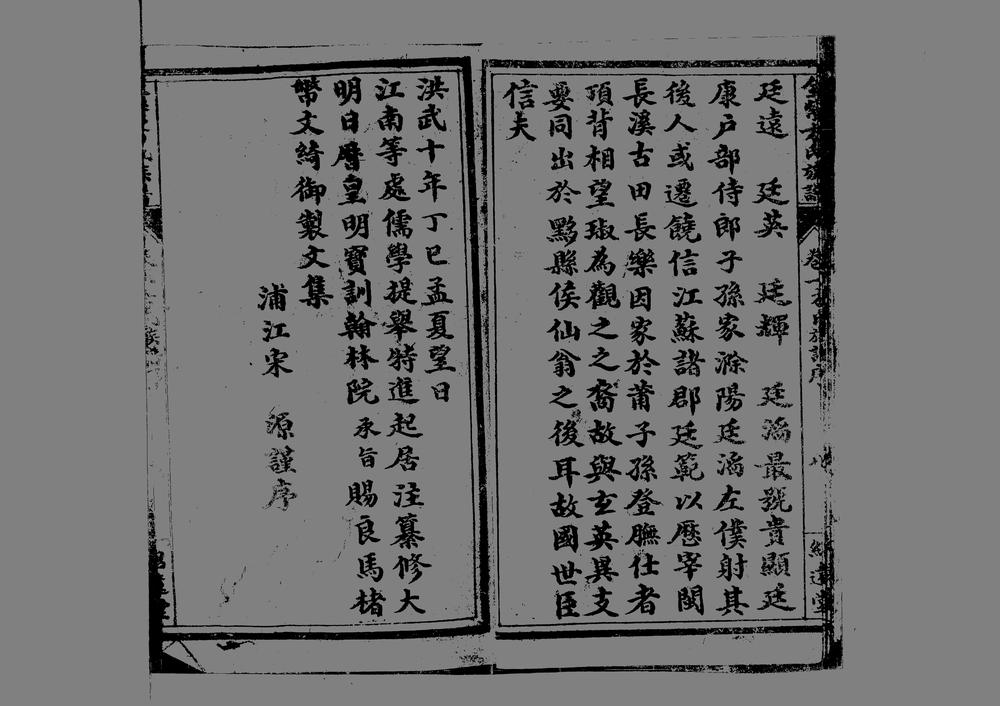 廷遠 廷英 廷輝 廷滔最號貴顯廷
康戶部侍郎子孫家滁陽廷滔左僕射其
後人或遷饒信江蘇諸郡廷範以歷宰閩
長溪古田長樂因家於莆子孫登膴仕者
項背相望琡為觀之之裔故與玄英異支
要同出於黟縣侯仙翁之後耳故國世臣
信夫
洪武十年丁巳孟夏望日
江南等處儒學提舉特進起居注纂修大
明日曆皇明寶訓翰林院承旨賜良馬楮
幣文綺御製文集
浦江宋 源謹序